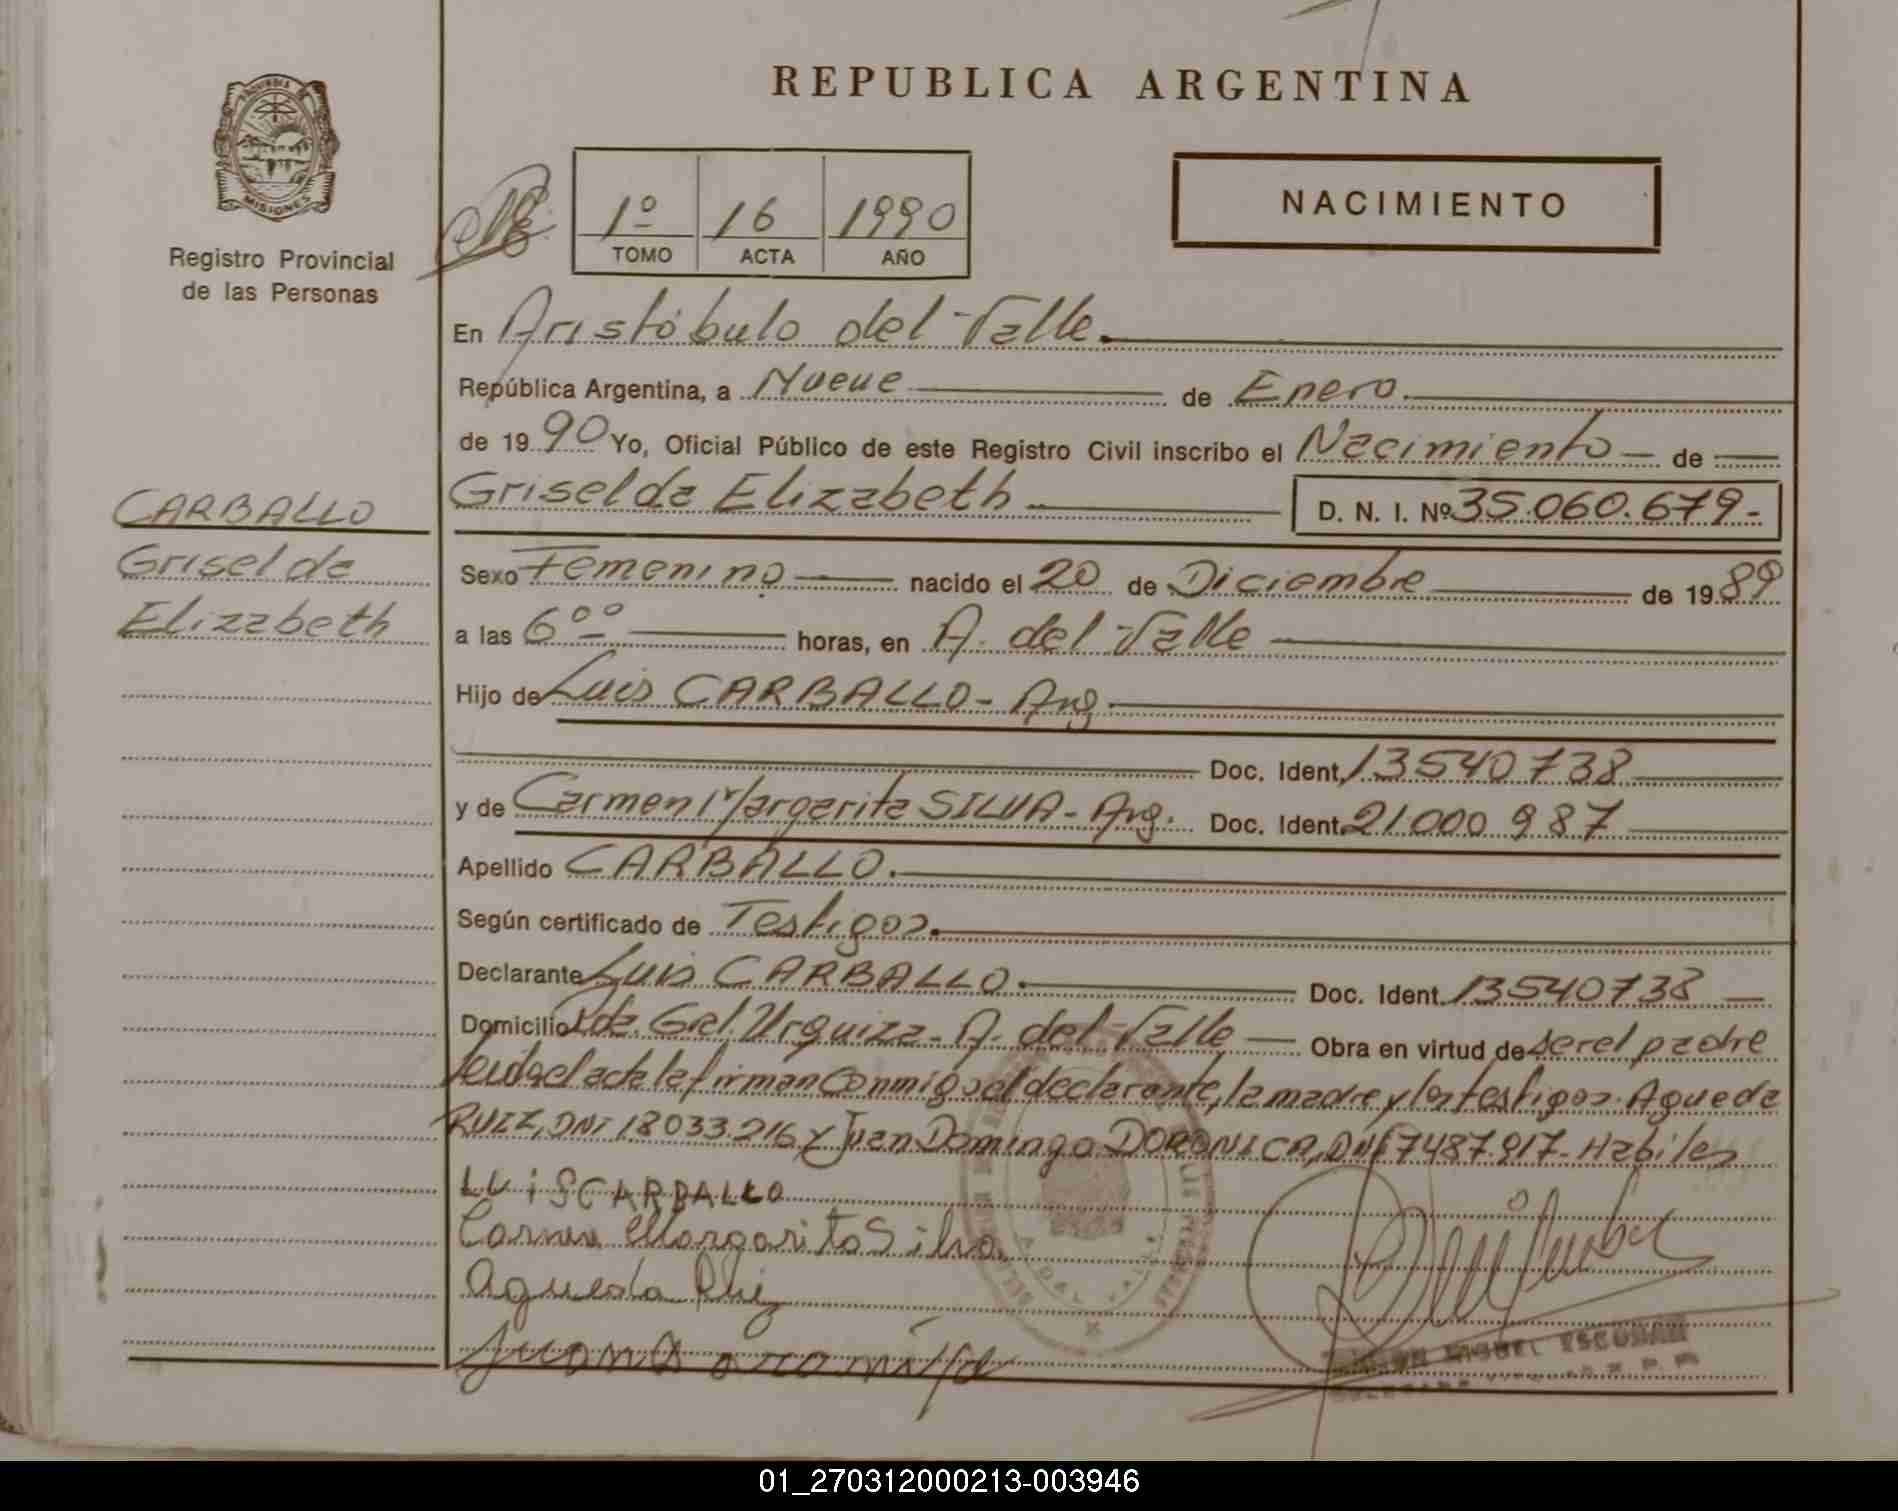 REPUBLICA ARGENTINA
PROVINCIA DE
MISIONES
Registro Provincial
de las Personas
1º 16 1990
TOMO ACTA AÑO
NACIMIENTO
En Aristóbulo del Valle.
República Argentina, a Nueve de Enero.
de 19 90 Yo, Oficial Público de este Registro Civil inscribo el Nacimiento de
Griselda Elizabeth D. N. I. Nº 35.060.679.-
CARBALLO
Griselda
Elizabeth
Sexo Femenino nacido el 20 de Diciembre de 19 89
a las 6ºº horas, en A. del Valle
Hijo de Luis CARBALLO - Arg.
Doc. Ident. 13540738
y de Carmen Margarita SILVA - Arg. Doc. Ident. 21000987
Apellido CARBALLO.
Según certificado de Testigos.
Declarante Luis CARBALLO. Doc. Ident. 13540738
Domicilio Pda. Gral. Urquiza - A. del Valle Obra en virtud de ser el padre
leida el acta la firman conmigo el declarante, la madre y los testigos. Agueda
RUIZ, DNI 18033216 y Juan Domingo DORONICA, DNI 7487.917 - Habiles
LUIS CARBALLO
Carmen Margarita Silva
Agueda Ruiz
MIGUEL ESCOBAR
01_270312000213-003946